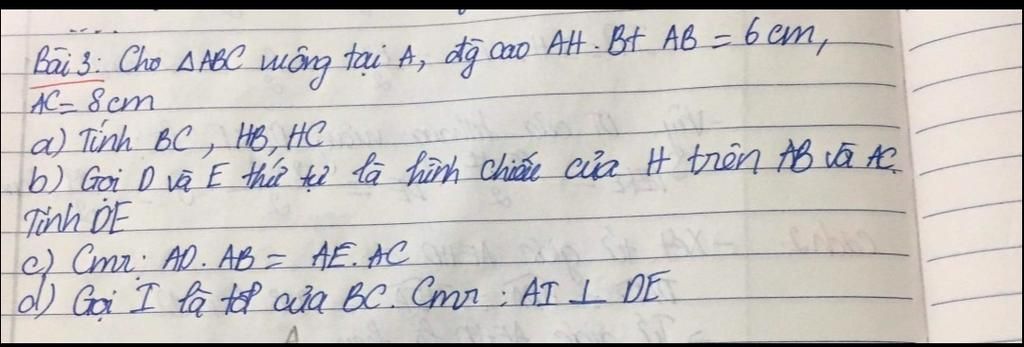 Bài 3: Cho △ABC vuông tại A, đg cao AH. Bt AB = 6 cm,
AC = 8 cm
a) Tính BC, HB, HC
b) Gọi D và E thứ tự là hình chiếu của H trên AB và AC.
Tính DE
c) Cmr: AD. AB = AE. AC
d) Gọi I là tđ của BC. Cmr: AI ⊥ DE